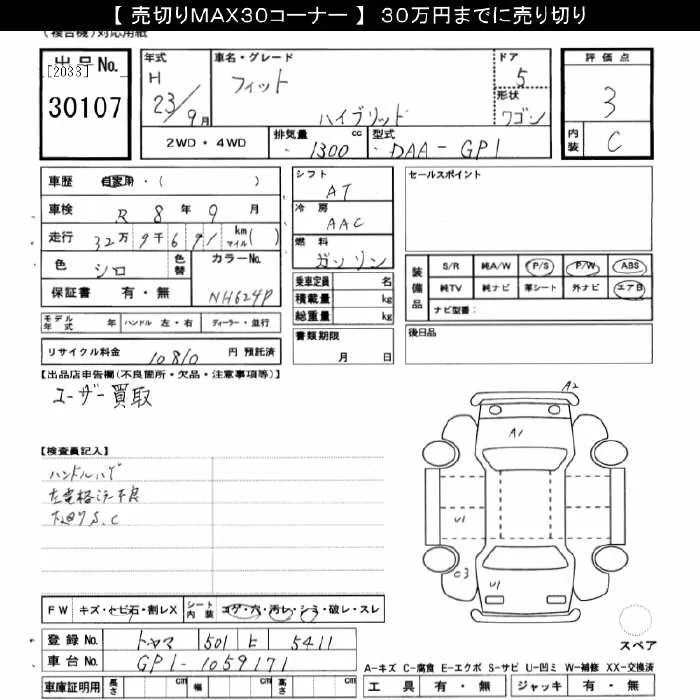 【 売切りMAX30コーナー 】 30万円までに売り切り
(複合機)対応用紙
出品No. [2033] 30107
年式 H 23/9月
車名・グレード フィット ハイブリッド
ドア 5
形状 ワゴン
評価点 3
内装 C
2WD・4WD
排気量 1300 cc
型式 DAA-GP1
車歴 自家用・( )
車検 R 8年 9月
走行 32万 9千 691 km マイル( )
色 シロ
色替
カラーNo. NH624P
保証書 有・無
シフト AT
冷房 AAC
燃料 ガソリン
乗車定員 名
積載量 kg
総重量 kg
書類期限 月 日
セールスポイント
装備品 S/R 純A/W P/S P/W ABS
純TV 純ナビ 革シート 外ナビ エアB
ナビ型番:
後日品
モデル年式 年 ハンドル 左・右 ディーラー・並行
リサイクル料金 10810 円 預託済
【出品店申告欄(不良箇所・欠品・注意事項等)】
ユーザー買取
【検査員記入】
ハンドルハゲ
左電格ミラー不良
下廻りS.C
A2
A1
U1
C3
U1
スペア
FW キズ・トビ石・割レX
シート内装 コゲ・穴・汚レ・シミ・破レ・スレ
登録No. トヤマ 501 E 5411
車台No. GP1-1059171
車庫証明用 長さ cm 幅 cm 高さ cm
A-キズ C-腐食 E-エクボ S-サビ U-凹ミ W-補修 XX-交換済
工具 有・無 ジャッキ 有・無